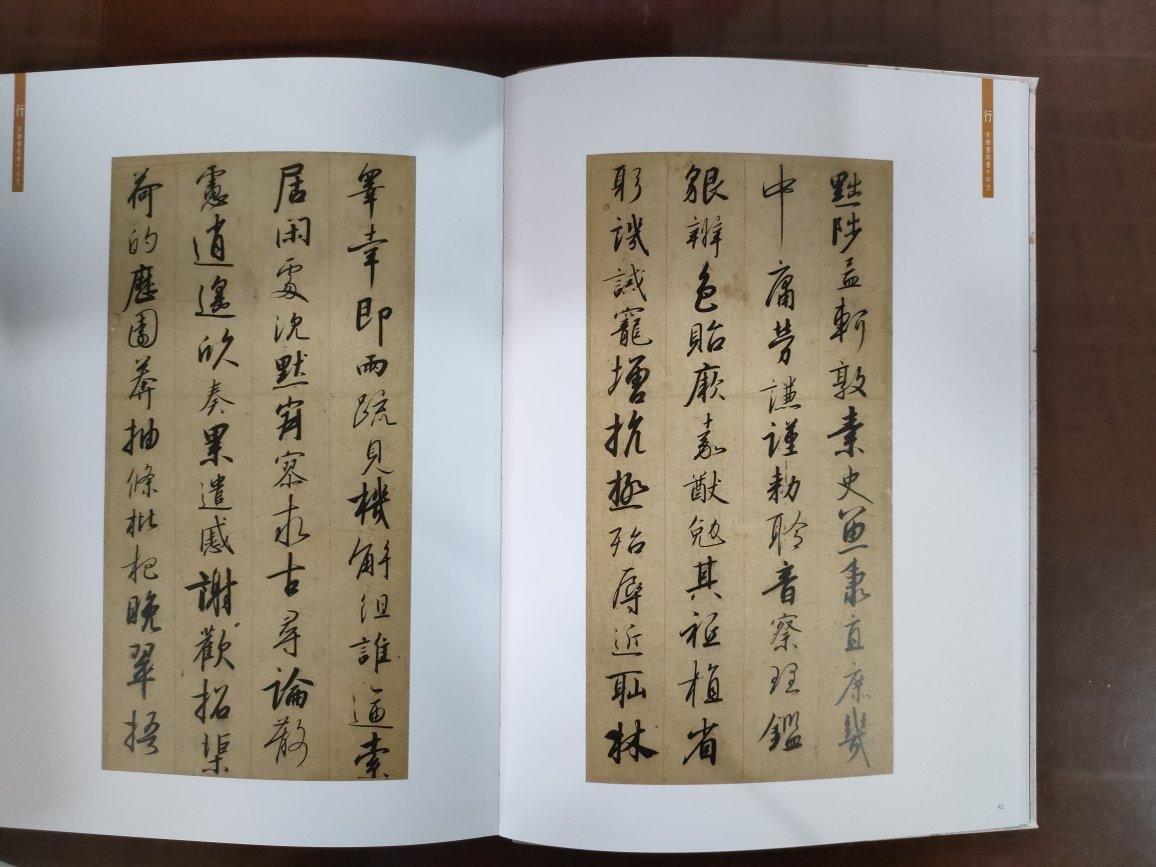 行
黜陟孟軻敦素史魚秉直庶幾
中庸勞謙謹勅聆音察理鑑
貌辨色貽厥嘉猷勉其祗植省
躬譏誡寵增抗極殆辱近耻林
42
行
睾幸即兩疏見機解組誰逼索
居閑處沈默寂寥求古尋論散
慮逍遙欣奏累遣慼謝歡招渠
荷的歷園莽抽條枇杷晚翠梧